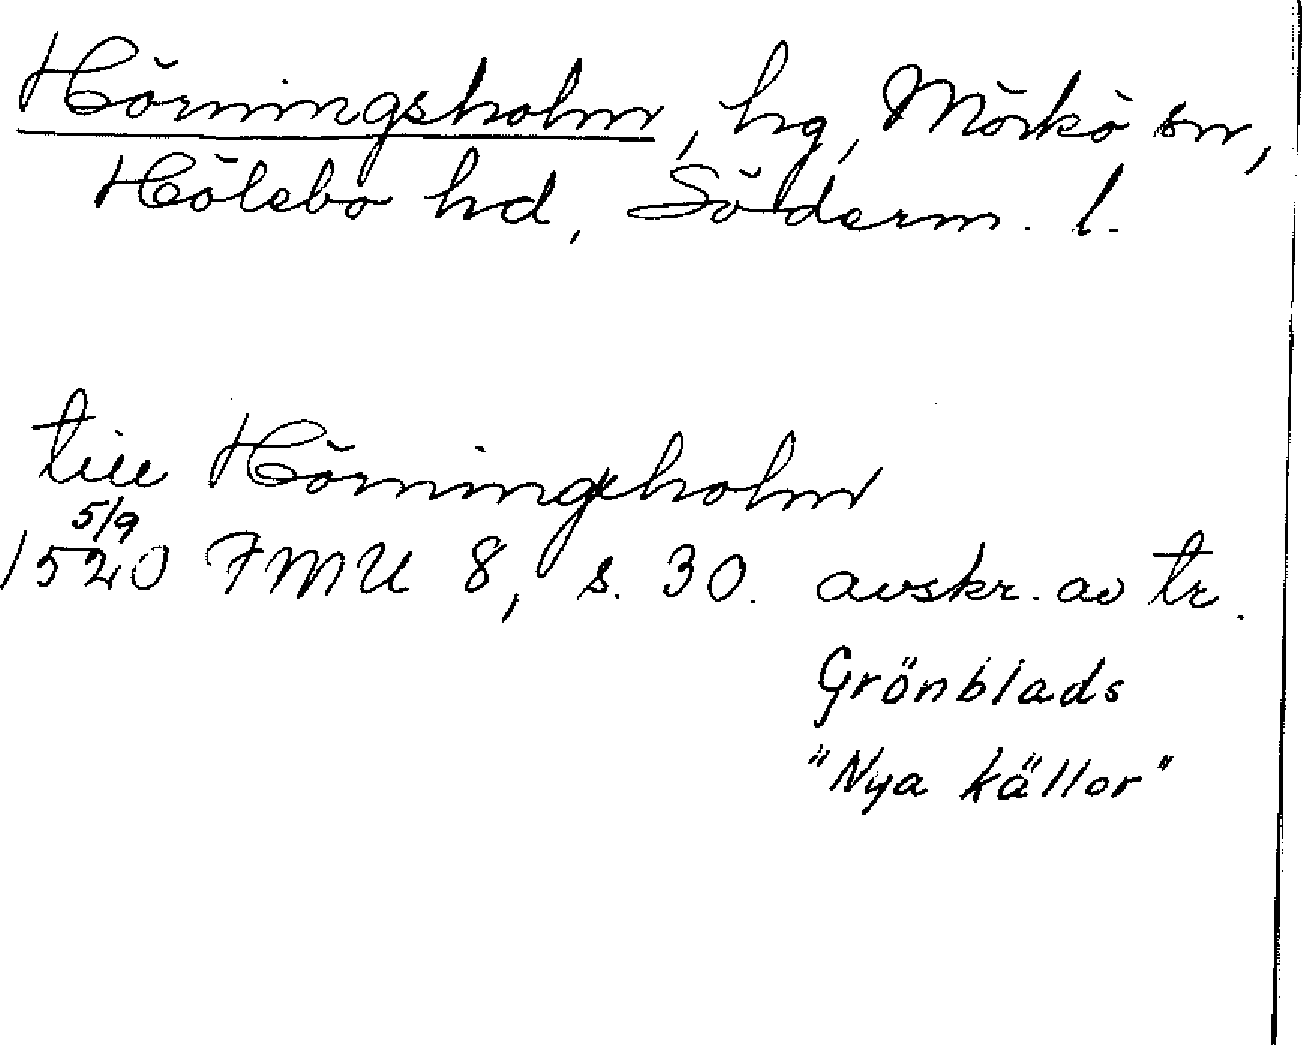 Hörningsholm, hg, Mörkö sn,
Hölebo hd, Söderm. l.
till Hörningsholm
5/9
1520 FMU 8, s. 30. avskr. av tr.
Grönblads
"Nya källor"